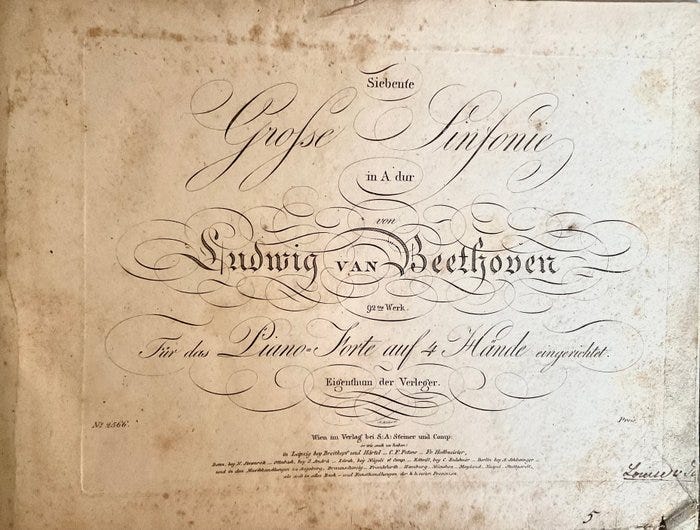 Siebente
Grosse Sinfonie
in A dur
von
Ludwig VAN Beethoven
92tes Werk.
Für das Piano=Forte auf 4 Hände eingerichtet.
Eigenthum der Verleger.
No. 2566.
Preis
Wien im Verlag bei S: A: Steiner und Comp:
so wie auch zu haben:
in Leipzig bey Breitkopf und Härtel _ C. F. Peters _ Fr. Hofmeister,
Bonn, bey N. Simrock _ Offenbach, bey J. André _ Zürch, bey Nägeli et Comp. _ bey C. _ Berlin bey A. Schlesinger _
und in den Musikhandlungen zu Augsburg, Braunschweig _ Frankfurth _ Hamburg _ München _ Mayland, Neapel _ Stuttgardt,
als auch in allen Buch _ und Kunsthandlungen der k. k. österr. Provinzen.
5